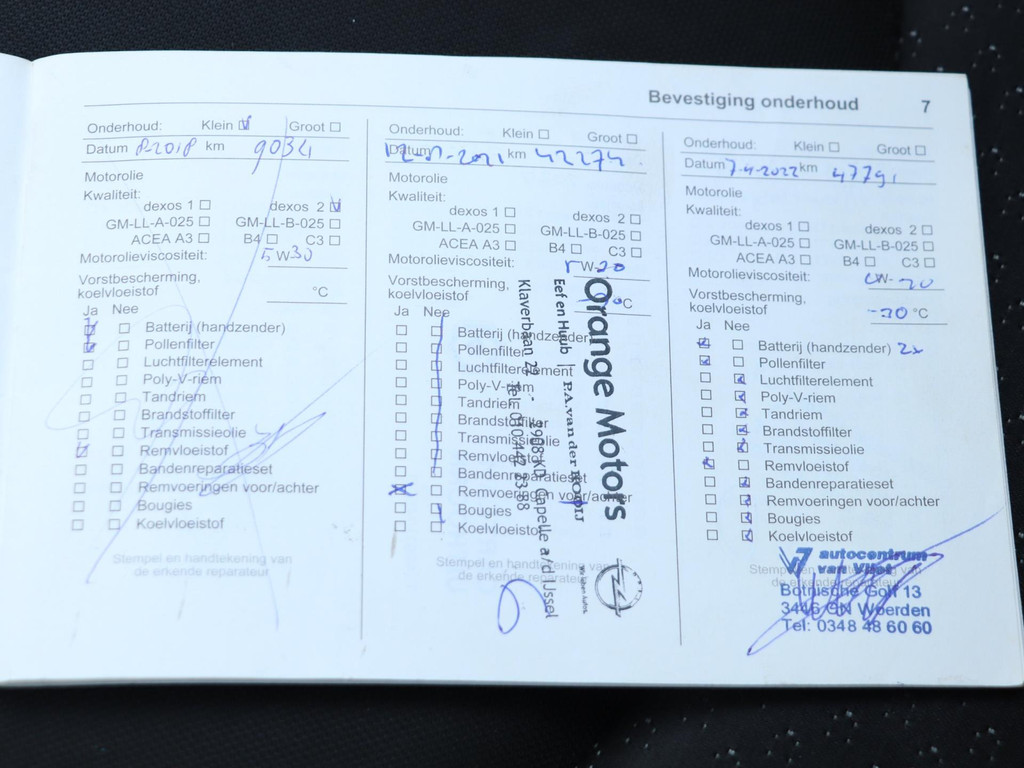 Bevestiging onderhoud 7
Onderhoud: Klein Groot
Datum 8-2018 km 9034
Motorolie
Kwaliteit:
dexos 1 dexos 2
GM-LL-A-025 GM-LL-B-025
ACEA A3 B4 C3
Motorolieviscositeit: 5W30
Vorstbescherming,
koelvloeistof °C
Ja Nee
Batterij (handzender)
Pollenfilter
Luchtfilterelement
Poly-V-riem
Tandriem
Brandstoffilter
Transmissieolie
Remvloeistof
Bandenreparatieset
Remvoeringen voor/achter
Bougies
Koelvloeistof
Stempel en handtekening van
de erkende reparateur
Onderhoud: Klein Groot
Datum 2021 km 42274
Motorolie
Kwaliteit:
dexos 1 dexos 2
GM-LL-A-025 GM-LL-B-025
ACEA A3 B4 C3
Motorolieviscositeit: W-20
Vorstbescherming,
koelvloeistof °C
Ja Nee
Batterij (handzender)
Pollenfilter
Luchtfilterelement
Poly-V-riem
Tandriem
Brandstoffilter
Transmissieolie
Remvloeistof
Bandenreparatieset
Remvoeringen voor/achter
Bougies
Koelvloeistof
Stempel en handtekening van
de erkende reparateur
Orange Motors
Eef en Huub | P.A. van der ROOIJ
Klaverbaan 22 - 2908 KD Capelle a/d IJssel
Tel. 010 442 23 88
Onderhoud: Klein Groot
Datum 7-4-2022 km 47791
Motorolie
Kwaliteit:
dexos 1 dexos 2
GM-LL-A-025 GM-LL-B-025
ACEA A3 B4 C3
Motorolieviscositeit: W-20
Vorstbescherming,
koelvloeistof -20 °C
Ja Nee
Batterij (handzender) 2x
Pollenfilter
Luchtfilterelement
Poly-V-riem
Tandriem
Brandstoffilter
Transmissieolie
Remvloeistof
Bandenreparatieset
Remvoeringen voor/achter
Bougies
Koelvloeistof
Stempel en handtekening van
de erkende reparateur
autocentrum
van Vliet
Botnische Golf 13
3446 CN Woerden
Tel: 0348 48 60 60